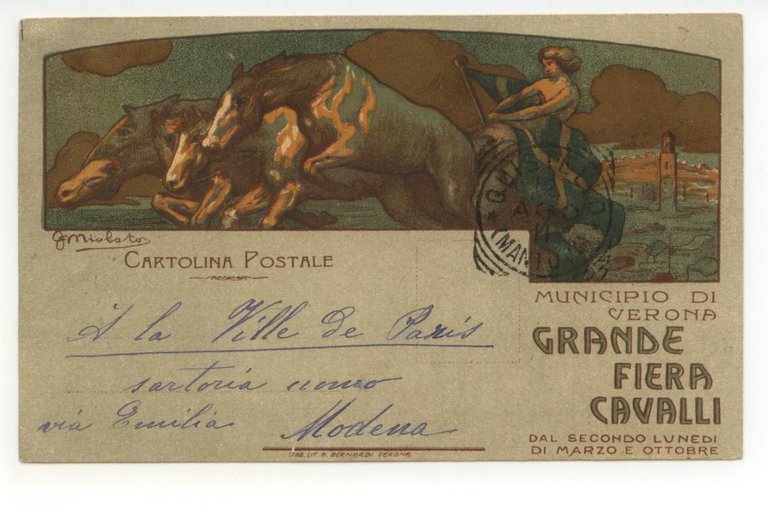 G Miolato
CARTOLINA POSTALE
A la Ville de Paris
sartoria uomo
via Emilia Modena
MUNICIPIO DI
VERONA
GRANDE
FIERA
CAVALLI
DAL SECONDO LUNEDI
DI MARZO E OTTOBRE
STAB. LIT. G. BERNARDI VERONA
AGO
11
(MAN